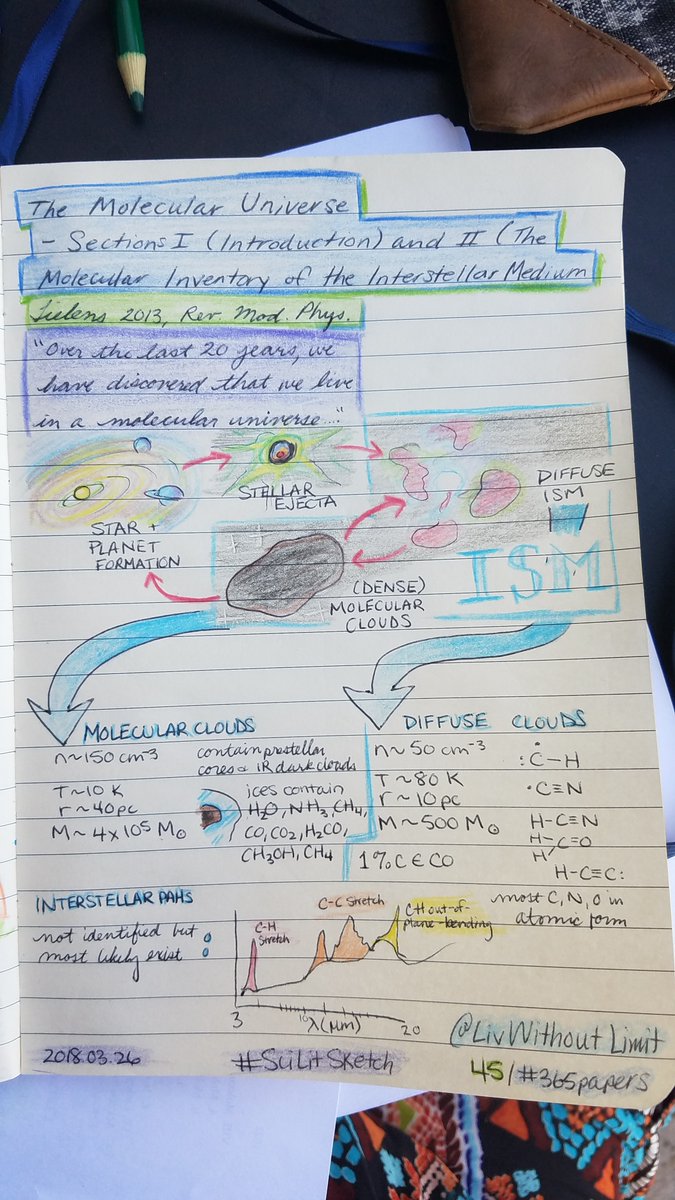 The Molecular Universe
- Sections I (Introduction) and II (The
Molecular Inventory of the Interstellar Medium
Tielens 2013, Rev. Mod. Phys.
"Over the last 20 years, we
have discovered that we live
in a molecular universe...."
STELLAR
EJECTA
DIFFUSE
ISM
STAR +
PLANET
FORMATION
ISM
(DENSE)
MOLECULAR
CLOUDS
MOLECULAR CLOUDS
n~150 cm⁻³
T~10 K
r~40pc
M~4x10⁵ M⊙
contain prestellar
cores + IR dark clouds
ices contain
H₂O, NH₃, CH₄,
CO, CO₂, H₂CO,
CH₃OH, CH₄
DIFFUSE CLOUDS
n~50 cm⁻³
T~80 K
r~10pc
M~500 M⊙
1% C ∈ CO
:Ċ-H
·C≡N
H-C≡N
H-C=O
H
H-C≡C:
most C, N, O in
atomic form
INTERSTELLAR PAHS
not identified but
most likely exist
C-H
Stretch
C-C Stretch
CH out-of-
plane-bending
3
10
λ(μm)
20
@LivWithoutLimit
2018.03.26
#SciLitSketch
45/#365papers